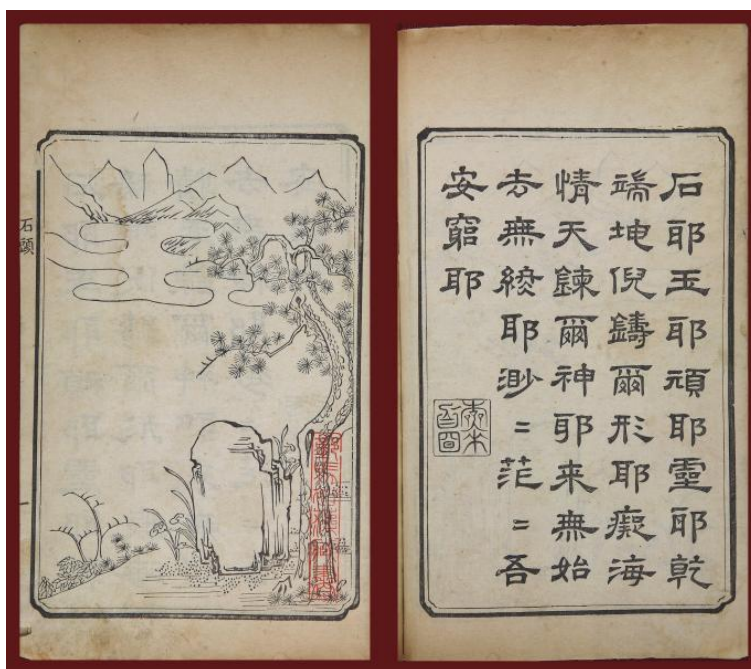 石耶玉耶頑耶靈耶乾
端坤倪鑄爾形耶癡海
情天鍊爾神耶来無始
去無終耶渺〻茫〻吾
安窮耶
石頭